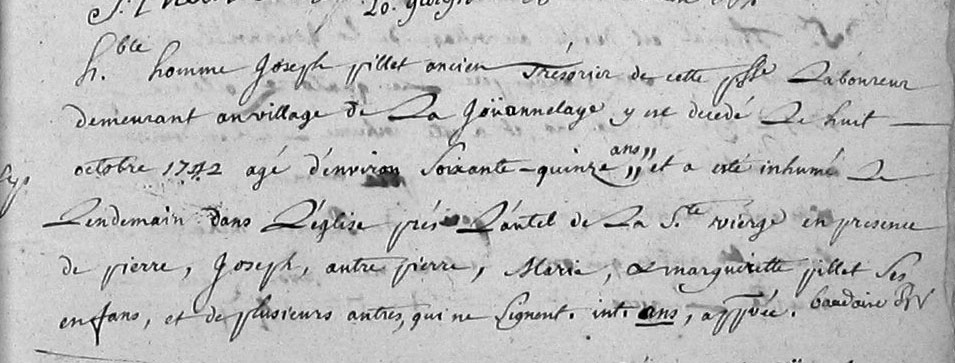 h.ble homme Joseph pillet ancien Trésorier de cette psse Laboureur
demeurant au village de La Joüannelaye y est decedé Le huit
octobre 1742 agé d'environ Soixante-quinze ans,, et a esté inhumé Le
Lendemain dans L'église prés L'autel de La Ste vierge en presence
de pierre, Joseph, autre pierre, Marie, & margueritte pillet Ses
enfans, et de plusieurs autres, qui ne Signent. int. ans, appvée.